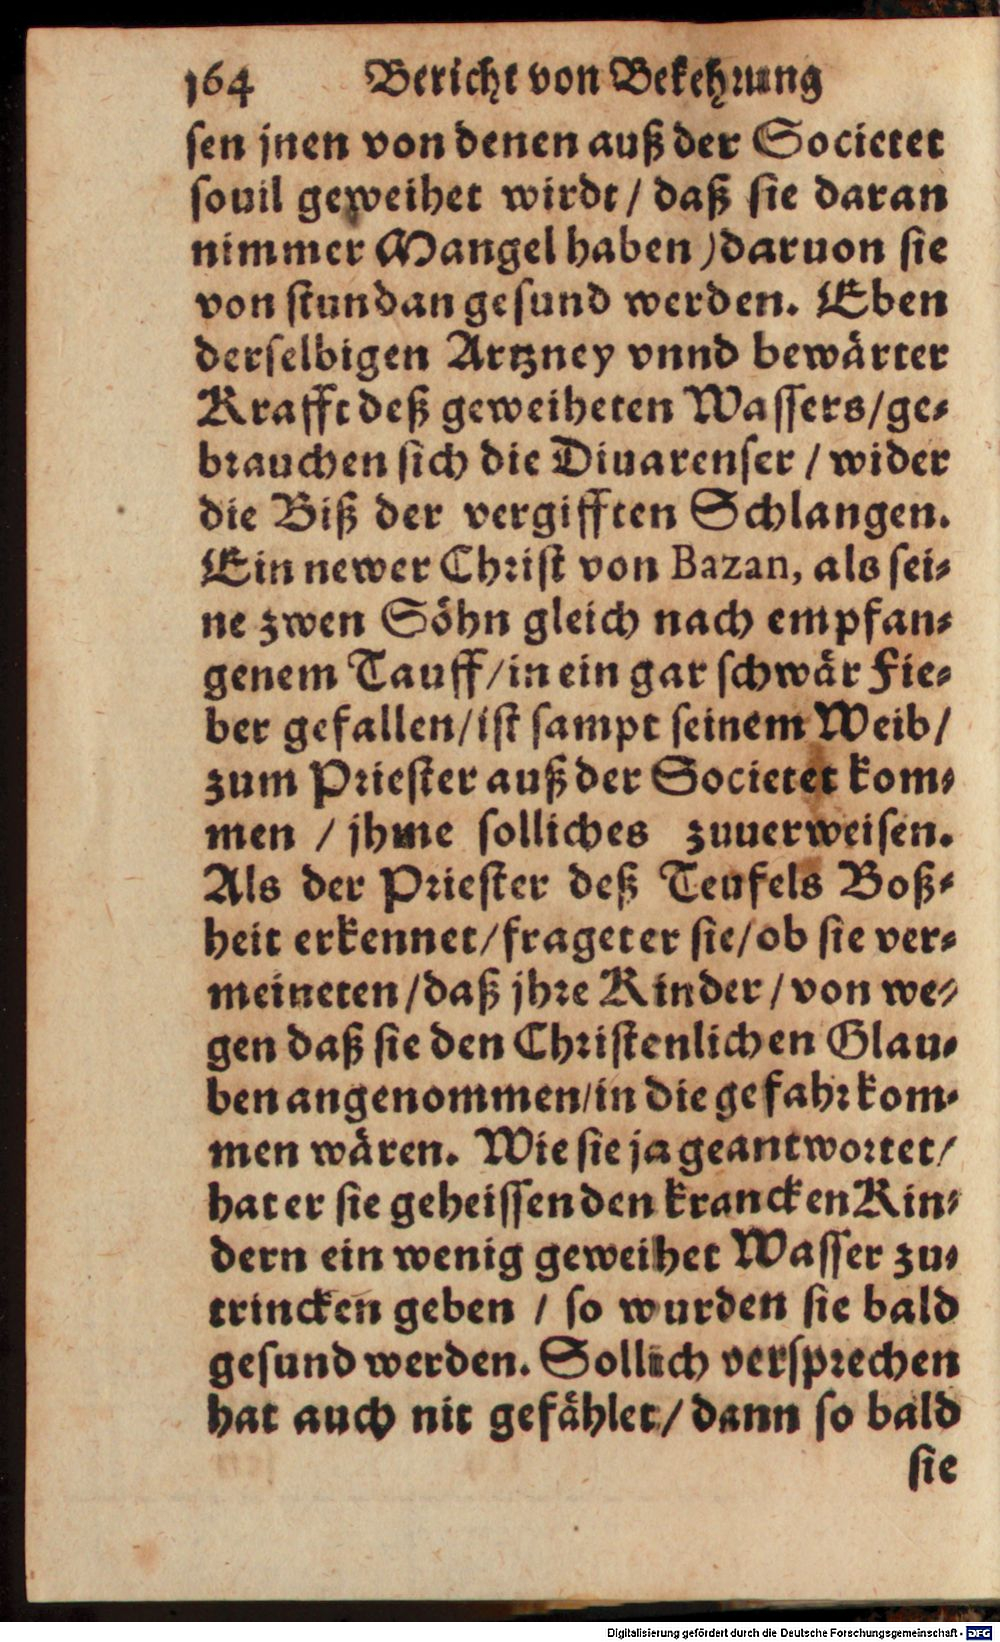 164 Bericht von Bekehrung
sen jnen von denen auß der Societet
souil geweihet wirdt / daß sie daran
nimmer Mangel haben ) daruon sie
von stundan gesund werden. Eben
derselbigen Artzney vnnd bewärter
Krafft deß geweiheten Wassers / ge⸗
brauchen sich die Diuarenser / wider
die Biß der vergifften Schlangen.
Ein newer Christ von Bazan, als sei⸗
ne zwen Söhn gleich nach empfan⸗
genem Tauff / in ein gar schwär Fie⸗
ber gefallen / ist sampt seinem Weib /
zum Priester auß der Societet kom⸗
men / jhme solliches zuuerweisen.
Als der Priester deß Teufels Boß⸗
heit erkennet / fraget er sie / ob sie ver⸗
meineten / daß jhre Kinder / von we⸗
gen daß sie den Christenlichen Glau⸗
ben angenommen / in die gefahr kom⸗
men wären. Wie sie ja geantwortet /
hat er sie geheissen den krancken Kin⸗
dern ein wenig geweihet Wasser zu⸗
trincken geben / so wurden sie bald
gesund werden. Sollich versprechen
hat auch nit gefählet / dann so bald
sie
Digitalisierung gefördert durch die Deutsche Forschungsgemeinschaft - DFG